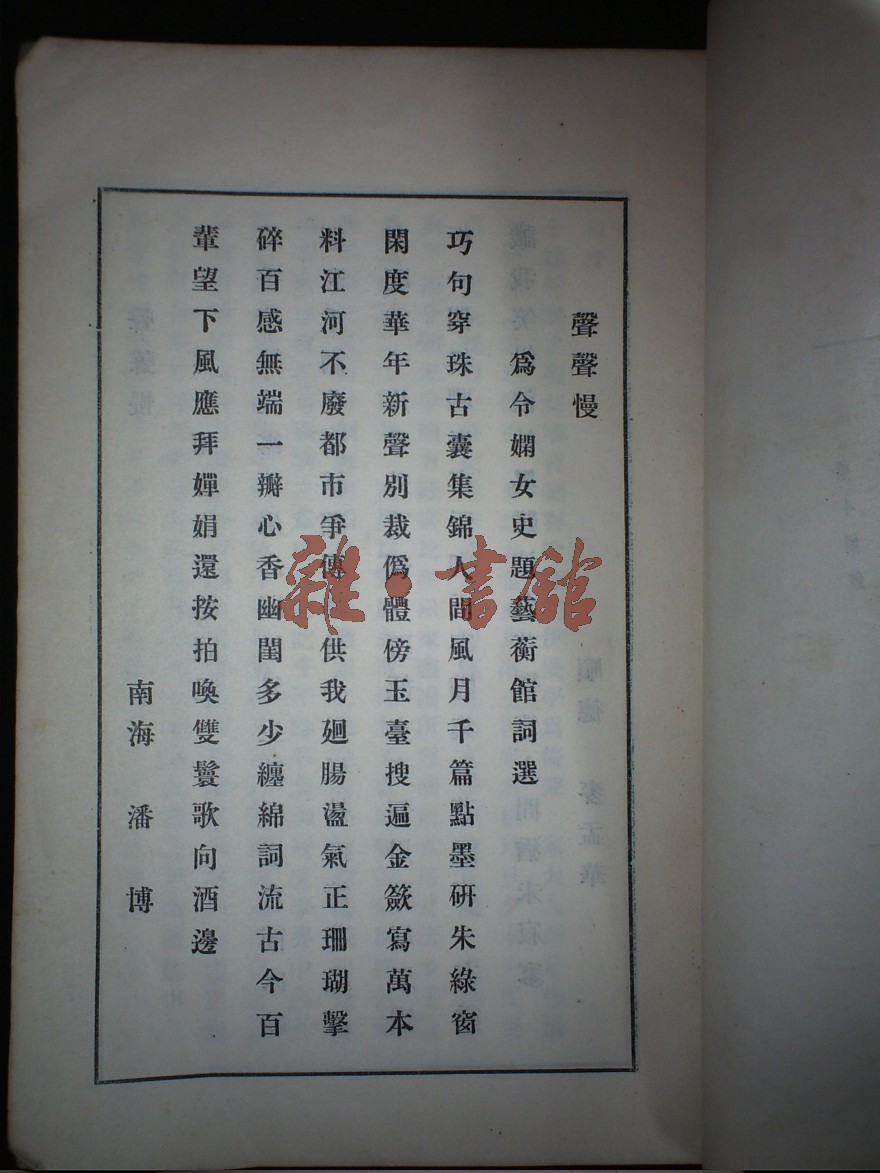 聲聲慢
爲令嫻女史題藝蘅館詞選
巧句穿珠古囊集錦人間風月千篇點墨硏朱綠窗
閑度華年新聲別裁僞體傍玉臺搜遍金籨寫萬本
料江河不廢都市爭傳 供我廻腸盪氣正珊瑚擊
碎百感無端一瓣心香幽閨多少纏綿詞流古今百
輩望下風應拜嬋娟還按拍喚雙鬟歌向酒邊
南海 潘 博
雜·書館